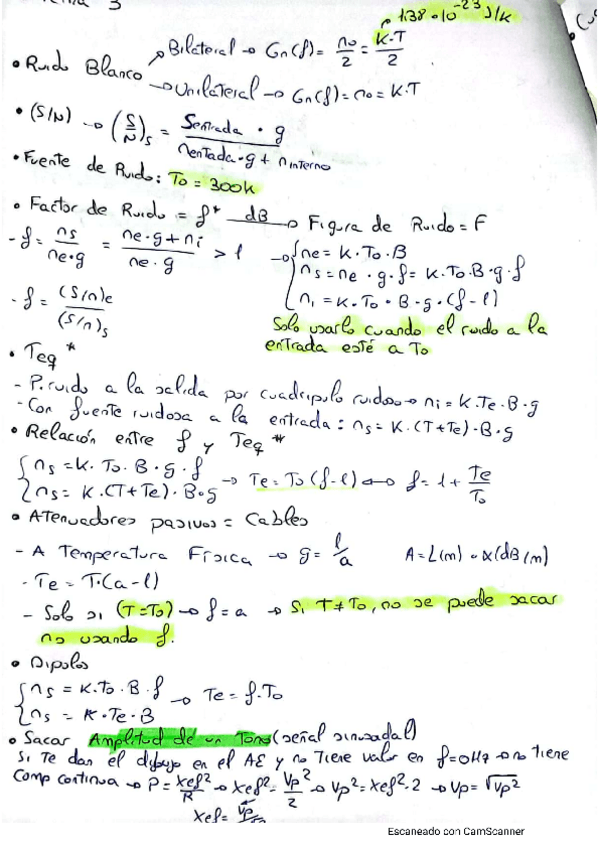 3
1.38·10^-23 J/K
• Ruido Blanco
Bilateral → Gn(f) = no/2 = K·T/2
→ Unilateral → Gn(f) = no = K·T
• (S/N) → (S/N)s = Sentrada · g / nentada·g + ninterno
• Fuente de Ruido: To = 300k
• Factor de Ruido = f* dB→ Figura de Ruido = F
- f = ns/ne·g = ne·g + ni/ne·g > 1 → { ne = K·To·B
ns = ne·g·f = K·To·B·g·f
- f = (S/n)e/(S/n)s ni = K·To·B·g·(f-1)
Solo usarlo cuando el ruido a la
entrada esté a To
• Teq *
- P. ruido a la salida por cuadripolo ruidoso → ni = K·Te·B·g
- Con fuente ruidosa a la entrada: ns = K·(T+Te)·B·g
• Relación entre f y Teq *
{ ns = K·To·B·g·f
ns = K·(T+Te)·B·g → Te = To(f-1) ↔ f = 1 + Te/To
• Atenuadores pasivos = Cables
- A Temperatura Física → g = 1/a A = L(m)·α(dB/m)
- Te = T·(a-1)
- Solo si (T=To) → f = a → Si T≠To, no se puede sacar
ns usando f.
• Dipolos
{ ns = K·To·B·f → Te = f·To
ns = K·Te·B
• Sacar Amplitud de un Tono (señal sinusoidal)
Si te dan el dibujo en el AE y no tiene valor en f=0Hz → no tiene
comp continua → P = Xef²/R → Xef² = Vp²/2 → Vp² = Xef²·2 → Vp = √Vp²
Xef = Vp
Escaneado con CamScanner